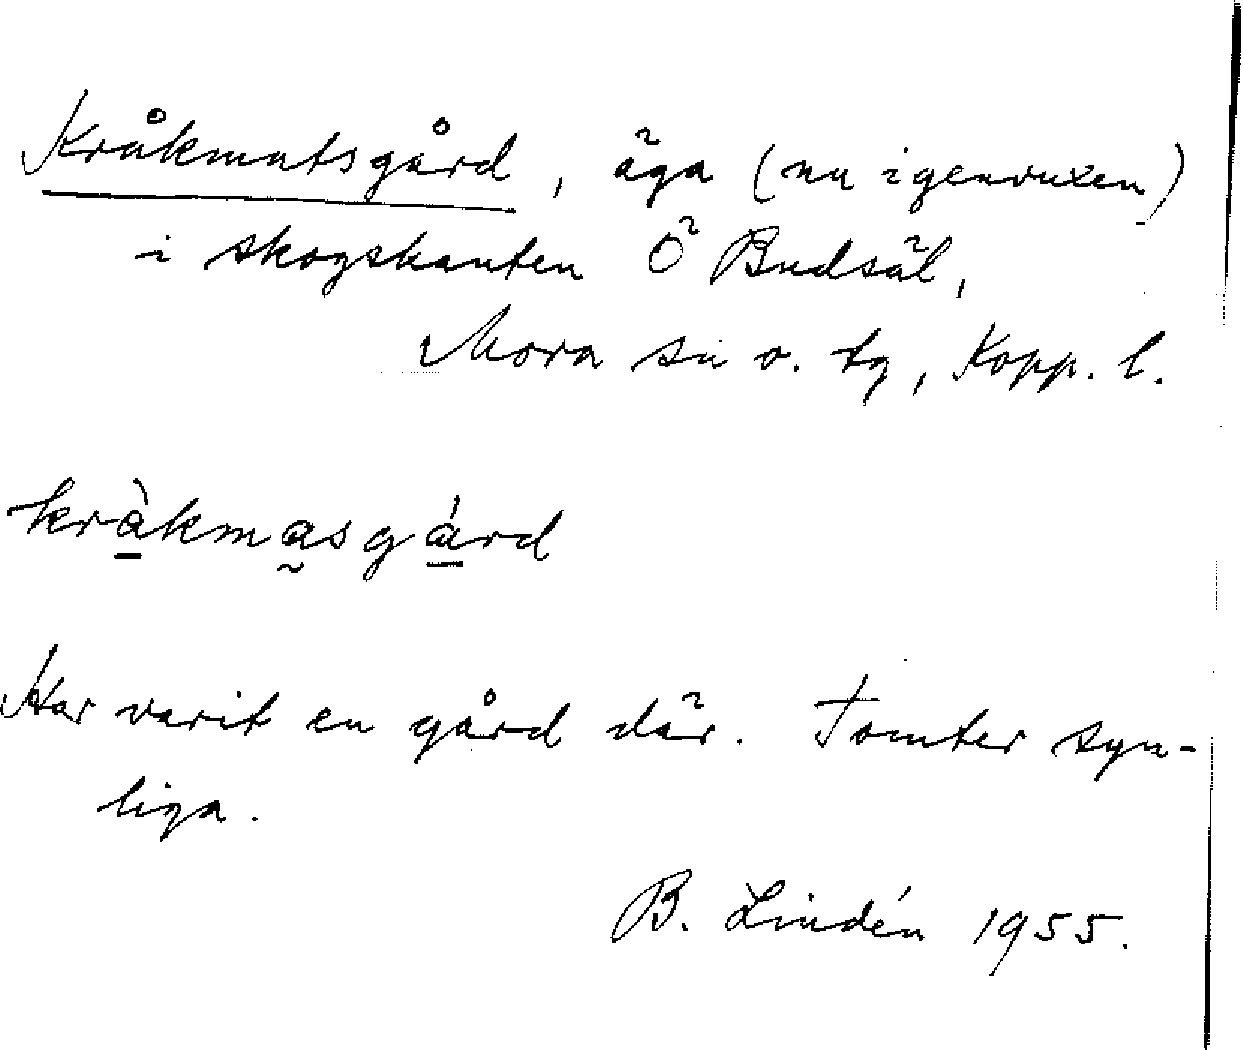 Kråkmatsgård, äga (nu igenvuxen)
i skogskanten Ö Budsäl,
Mora sn o. tg, Kopp. l.
kràkmasgárd
Har varit en gård där. Tomter syn-
liga.
B. Lindén 1955.